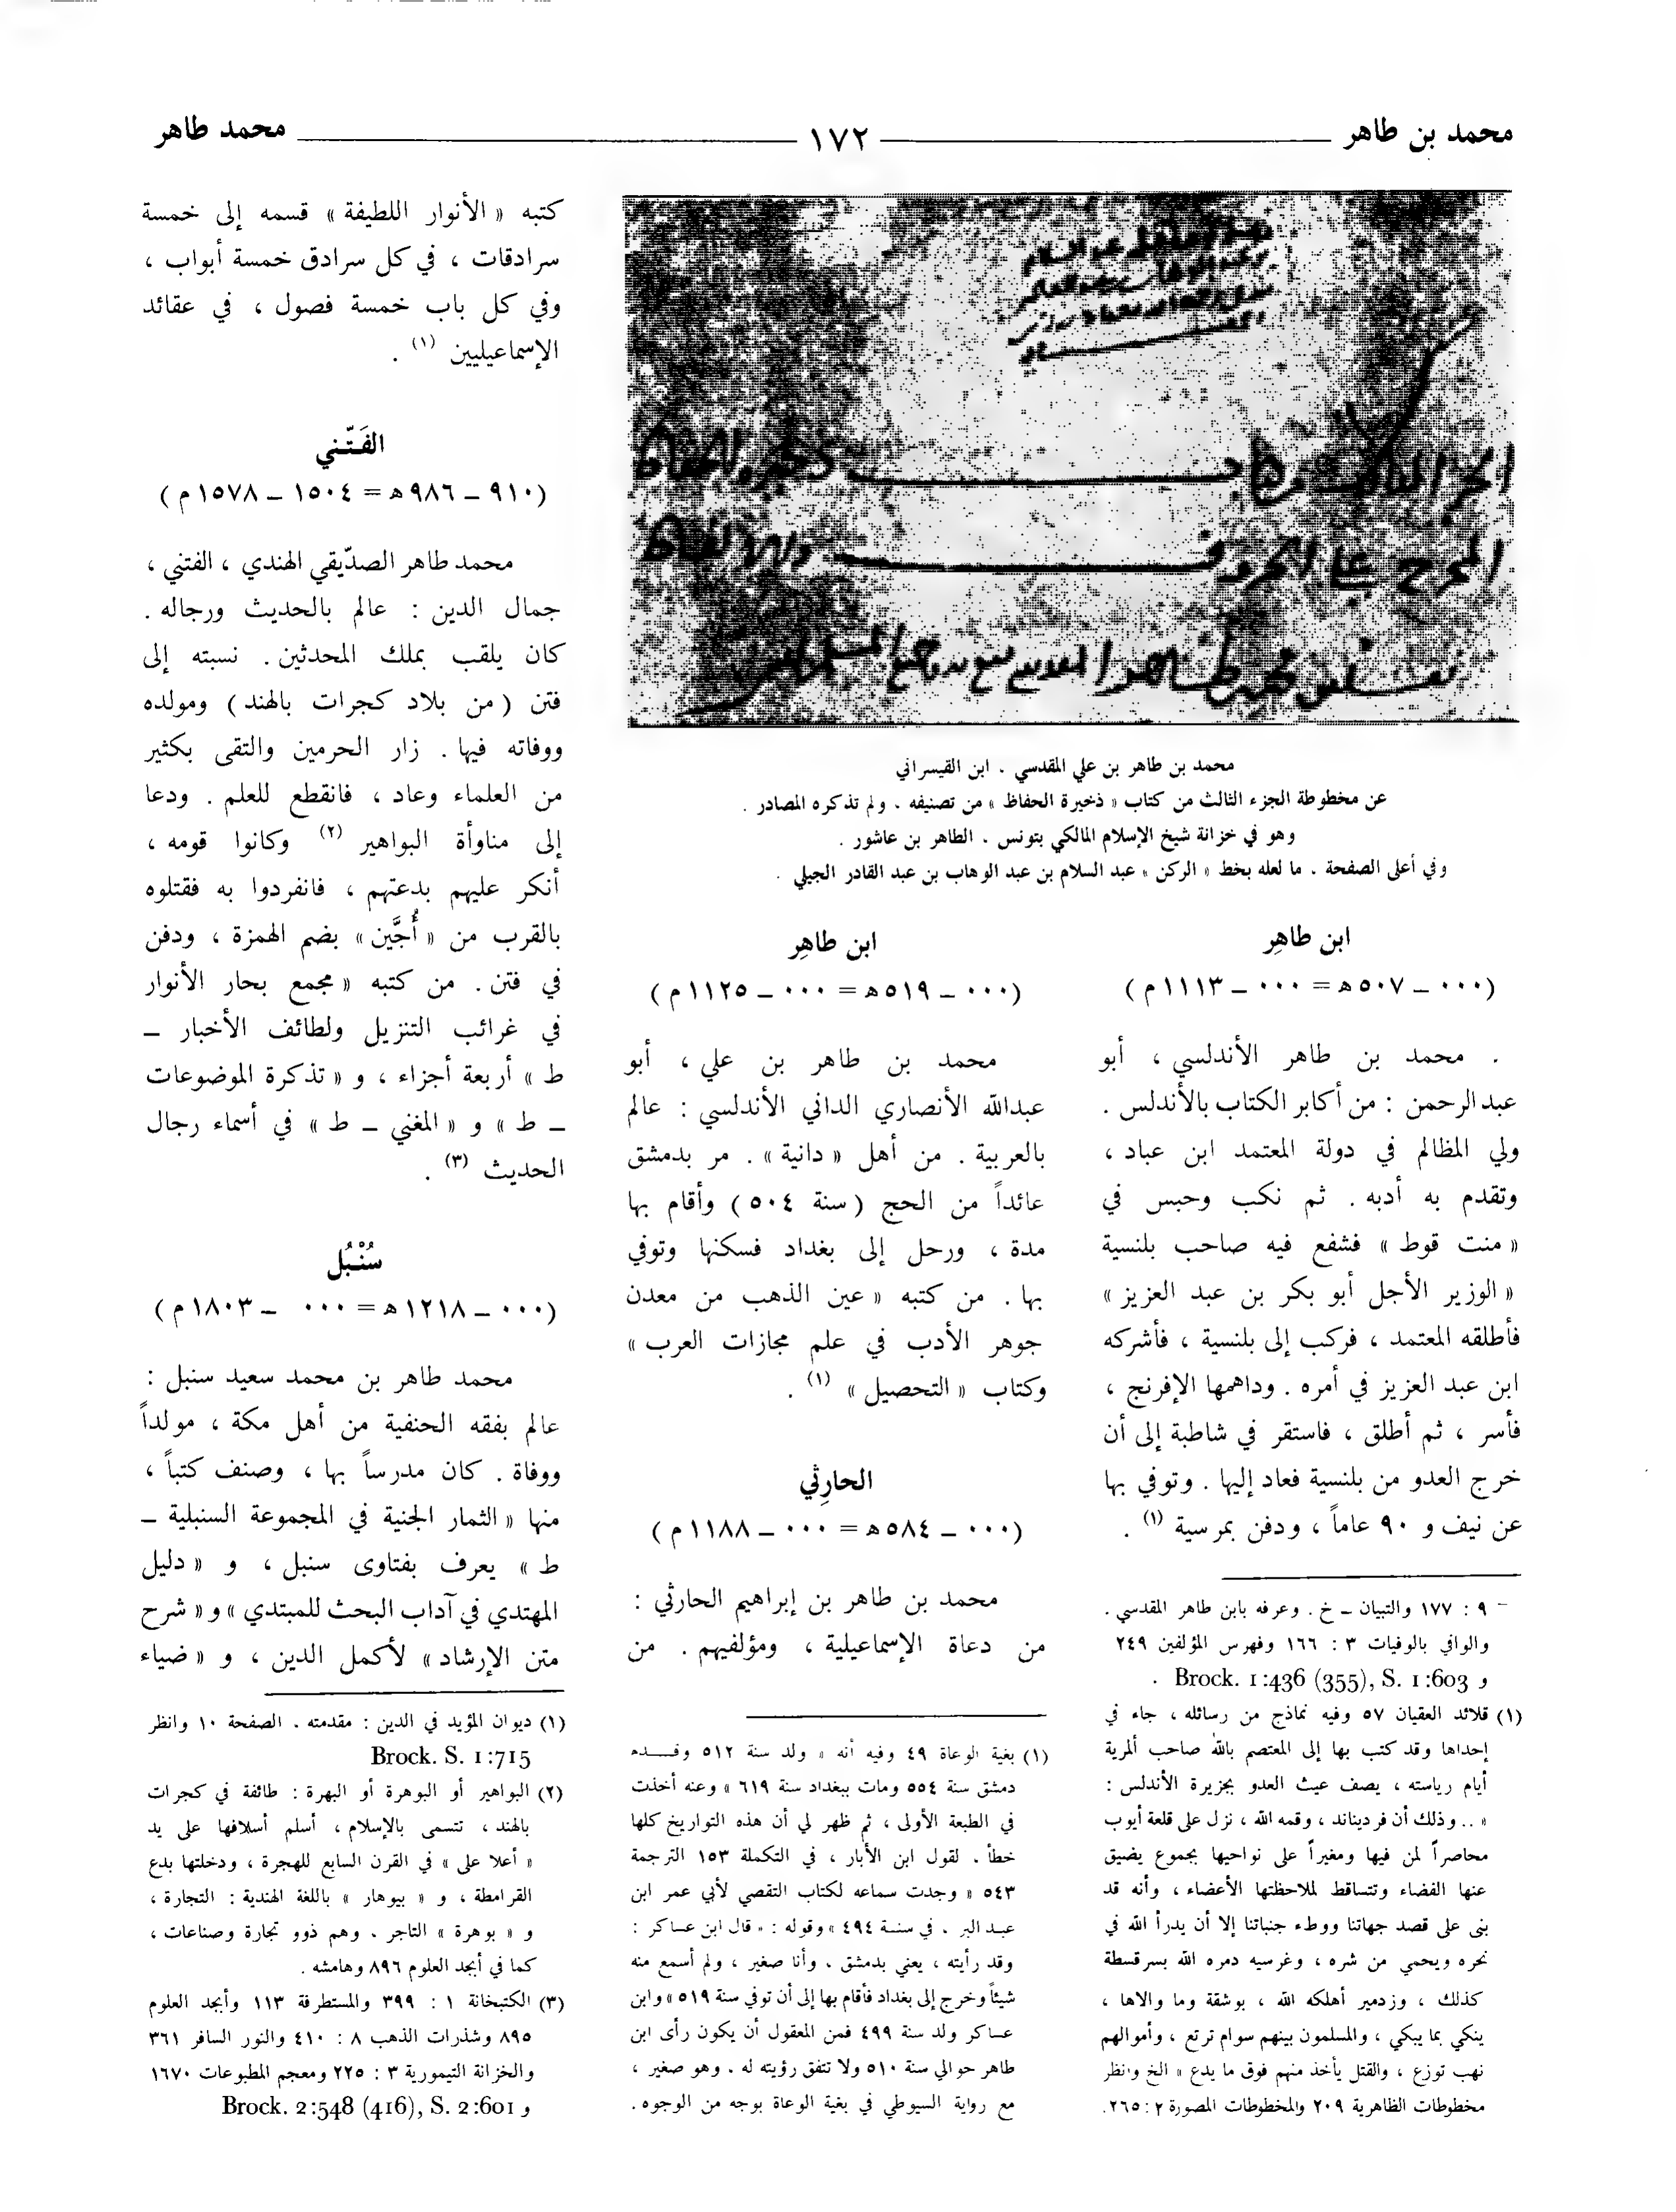 محمد بن طاهر
١٧٢
محمد طاهر
محمد بن طاهر بن علي المقدسي ، ابن القيسراني
عن مخطوطة الجزء الثالث من كتاب « ذخيرة الحفاظ » من تصنيفه ، ولم تذكره المصادر .
وهو في خزانة شيخ الإسلام المالكي بتونس ، الطاهر بن عاشور .
وفي أعلى الصفحة ، ما لعله بخط « الركن » عبد السلام بن عبد الوهاب بن عبد القادر الجيلي .
ابن طاهِر
(٠٠٠ ــ ٥٠٧ھ = ٠٠٠ ــ ١١١٣م)
محمد بن طاهر الأندلسي ، أبو
عبد الرحمن : من أكابر الكتاب بالأندلس .
ولي المظالم في دولة المعتمد ابن عباد ،
وتقدم به أدبه . ثم نكب وحبس في
« منت قوط » فشفع فيه صاحب بلنسية
« الوزير الأجل أبو بكر بن عبد العزيز »
فأطلقه المعتمد ، فركب إلى بلنسية ، فأشركه
ابن عبد العزيز في أمره . وداهمها الإفرنج ،
فأسر ، ثم أطلق ، فاستقر في شاطبة إلى أن
خرج العدو من بلنسية فعاد إليها . وتوفي بها
عن نيف و ٩٠ عاماً ، ودفن بمرسية (١) .
ــ ٩ : ١٧٧ والتبيان ــ خ . وعرفه بابن طاهر المقدسي .
والوافي بالوفيات ٣ : ١٦٦ وفهرس المؤلفين ٢٤٩
و Brock. 1:436 (355), S. 1:603 .
(١) قلائد العقيان ٥٧ وفيه نماذج من رسائله ، جاء في
إحداها وقد كتب بها إلى المعتصم بالله صاحب ألمرية
أيام رياسته ، يصف عيث العدو بجزيرة الأندلس :
« .. وذلك أن فرديناند ، وقمه الله ، نزل على قلعة أيوب
محاصراً لمن فيها ومغيراً على نواحيها بجموع يضيق
عنها الفضاء وتتساقط لملاحظتها الأعضاء ، وأنه قد
بنى على قصد جهاتنا ووطء جنباتنا إلا أن يدرأ الله في
نحره ويحمي من شره ، وغرسيه دمره الله بسرقسطة
كذلك ، وزدمير أهلكه الله ، بوشقة وما والاها ،
ينكي بما يبكي ، والمسلمون بينهم سوام ترتع ، وأموالهم
نهب توزع ، والقتل يأخذ منهم فوق ما يدع » الخ وانظر
مخطوطات الظاهرية ٢٠٩ والمخطوطات المصورة ٢ : ٢٦٥.
ابن طاهِر
(٠٠٠ ــ ٥١٩ھ = ٠٠٠ ــ ١١٢٥م)
محمد بن طاهر بن علي ، أبو
عبدالله الأنصاري الداني الأندلسي : عالم
بالعربية . من أهل « دانية » . مر بدمشق
عائداً من الحج (سنة ٥٠٤) وأقام بها
مدة ، ورحل إلى بغداد فسكنها وتوفي
بها . من كتبه « عين الذهب من معدن
جوهر الأدب في علم مجازات العرب »
وكتاب « التحصيل » (١) .
الحارِثي
(٠٠٠ ــ ٥٨٤ھ = ٠٠٠ ــ ١١٨٨م)
محمد بن طاهر بن إبراهيم الحارثي :
من دعاة الإسماعيلية ، ومؤلفيهم . من
(١) بغية الوعاة ٤٩ وفيه أنه « ولد سنة ٥١٢ وقــدم
دمشق سنة ٥٥٤ ومات ببغداد سنة ٦١٩ » وعنه أخذت
في الطبعة الأولى ، ثم ظهر لي أن هذه التواريخ كلها
خطأ . لقول ابن الأبار ، في التكملة ١٥٣ الترجمة
٥٤٣ « وجدت سماعه لكتاب التقصي لأبي عمر ابن
عبد البر ، في سنة ٤٩٤ » وقوله : « قال ابن عساكر :
وقد رأيته ، يعني بدمشق ، وأنا صغير ، ولم أسمع منه
شيئاً وخرج إلى بغداد فأقام بها إلى أن توفي سنة ٥١٩ » وابن
عساكر ولد سنة ٤٩٩ فمن المعقول أن يكون رأى ابن
طاهر حوالي سنة ٥١٠ ولا تتفق رؤيته له ، وهو صغير ،
مع رواية السيوطي في بغية الوعاة بوجه من الوجوه .
كتبه « الأنوار اللطيفة » قسمه إلى خمسة
سرادقات ، في كل سرادق خمسة أبواب ،
وفي كل باب خمسة فصول ، في عقائد
الإسماعيليين (١) .
الفَتَّني
(٩١٠ ــ ٩٨٦ھ = ١٥٠٤ ــ ١٥٧٨م)
محمد طاهر الصدّيقي الهندي ، الفتني ،
جمال الدين : عالم بالحديث ورجاله .
كان يلقب بملك المحدثين . نسبته إلى
فتن (من بلاد كجرات بالهند) ومولده
ووفاته فيها . زار الحرمين والتقى بكثير
من العلماء وعاد ، فانقطع للعلم . ودعا
إلى مناوأة البواهير (٢) وكانوا قومه ،
أنكر عليهم بدعتهم ، فانفردوا به فقتلوه
بالقرب من « أُجَّين » بضم الهمزة ، ودفن
في فتن . من كتبه « مجمع بحار الأنوار
في غرائب التنزيل ولطائف الأخبار ــ
ط » أربعة أجزاء ، و « تذكرة الموضوعات
ــ ط » و « المغني ــ ط » في أسماء رجال
الحديث (٣) .
سُنْبُل
(٠٠٠ ــ ١٢١٨ھ = ٠٠٠ ــ ١٨٠٣م)
محمد طاهر بن محمد سعيد سنبل :
عالم بفقه الحنفية من أهل مكة ، مولداً
ووفاة . كان مدرساً بها ، وصنف كتباً ،
منها « الثمار الجنية في المجموعة السنبلية ــ
ط » يعرف بفتاوى سنبل ، و « دليل
المهتدي في آداب البحث للمبتدي » و « شرح
متن الإرشاد » لأكمل الدين ، و « ضياء
(١) ديوان المؤيد في الدين : مقدمته ، الصفحة ١٠ وانظر
Brock. S. 1:715
(٢) البواهير أو البوهرة أو البهرة : طائفة في كجرات
بالهند ، تتسمى بالإسلام ، أسلم أسلافها على يد
« أعلا على » في القرن السابع للهجرة ، ودخلتها بدع
القرامطة ، و « بيوهار » باللغة الهندية : التجارة ،
و « بوهرة » التاجر . وهم ذوو تجارة وصناعات ،
كما في أبجد العلوم ٨٩٦ وهامشه .
(٣) الكتبخانة ١ : ٣٩٩ والمستطرفة ١١٣ وأبجد العلوم
٨٩٥ وشذرات الذهب ٨ : ٤١٠ والنور السافر ٣٦١
والخزانة التيمورية ٣ : ٢٢٥ ومعجم المطبوعات ١٦٧٠
و Brock. 2:548 (416), S. 2:601